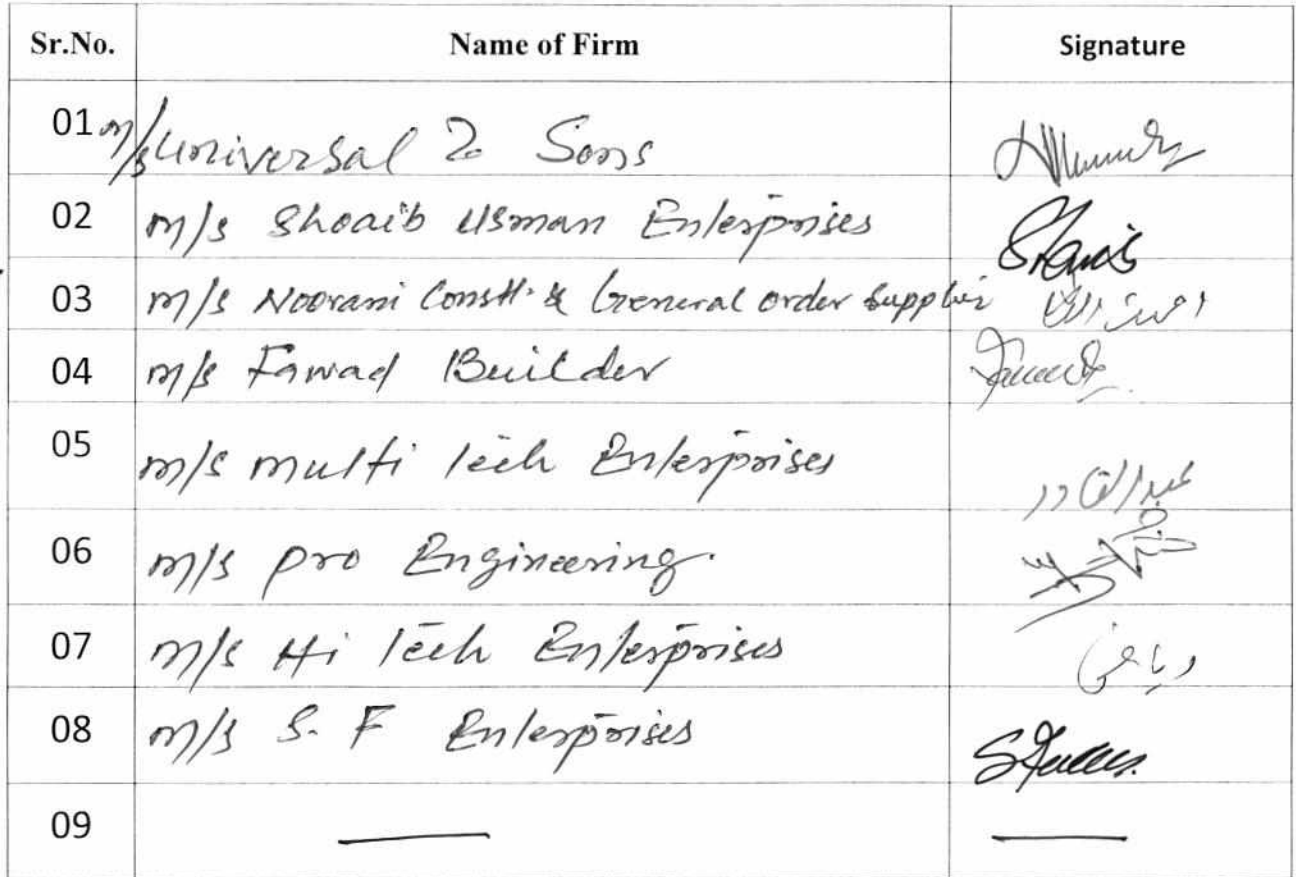 Sr.No. Name of Firm Signature
01 M/s Universal & Sons
02 M/s Shoaib Usman Enterprises
03 M/s Noorani Constt. & General order supplier
04 M/s Fawad Builder
05 M/s Multi Tech Enterprises عبدالقادر
06 M/s Pro Engineering.
07 M/s Hi Tech Enterprises
08 M/s S. F Enterprises
09 — —